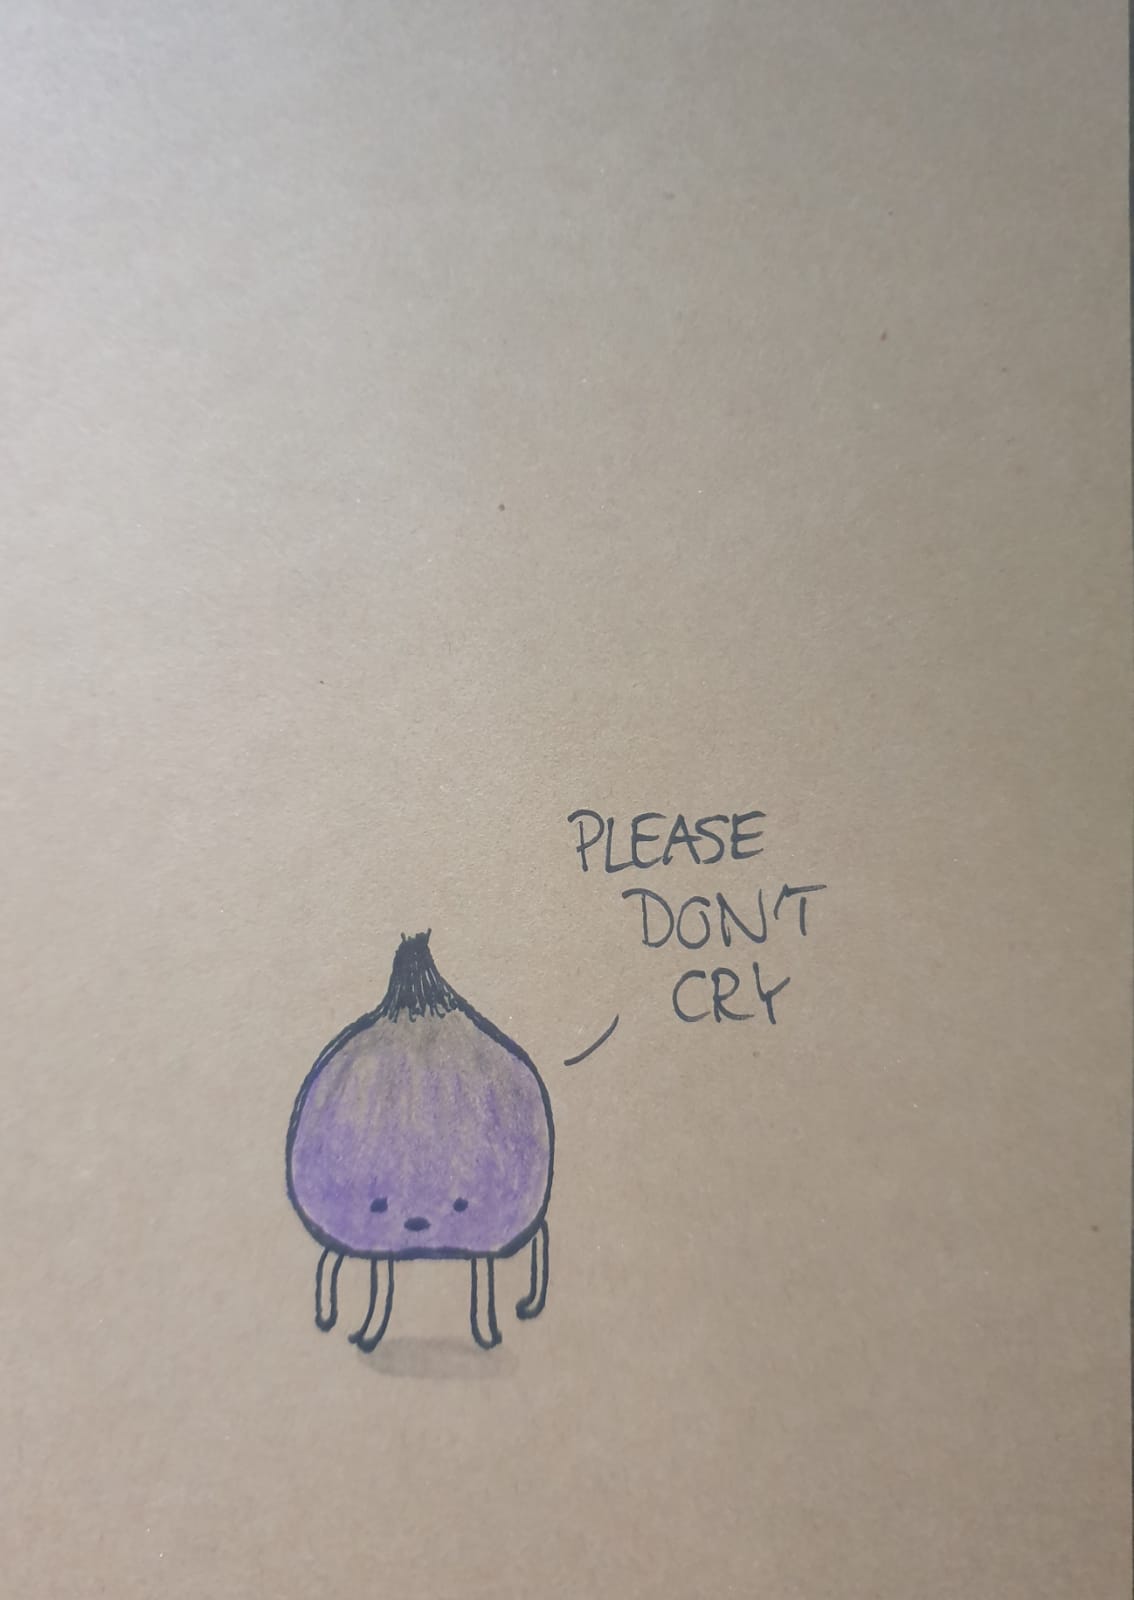 PLEASE
DON'T
CRY